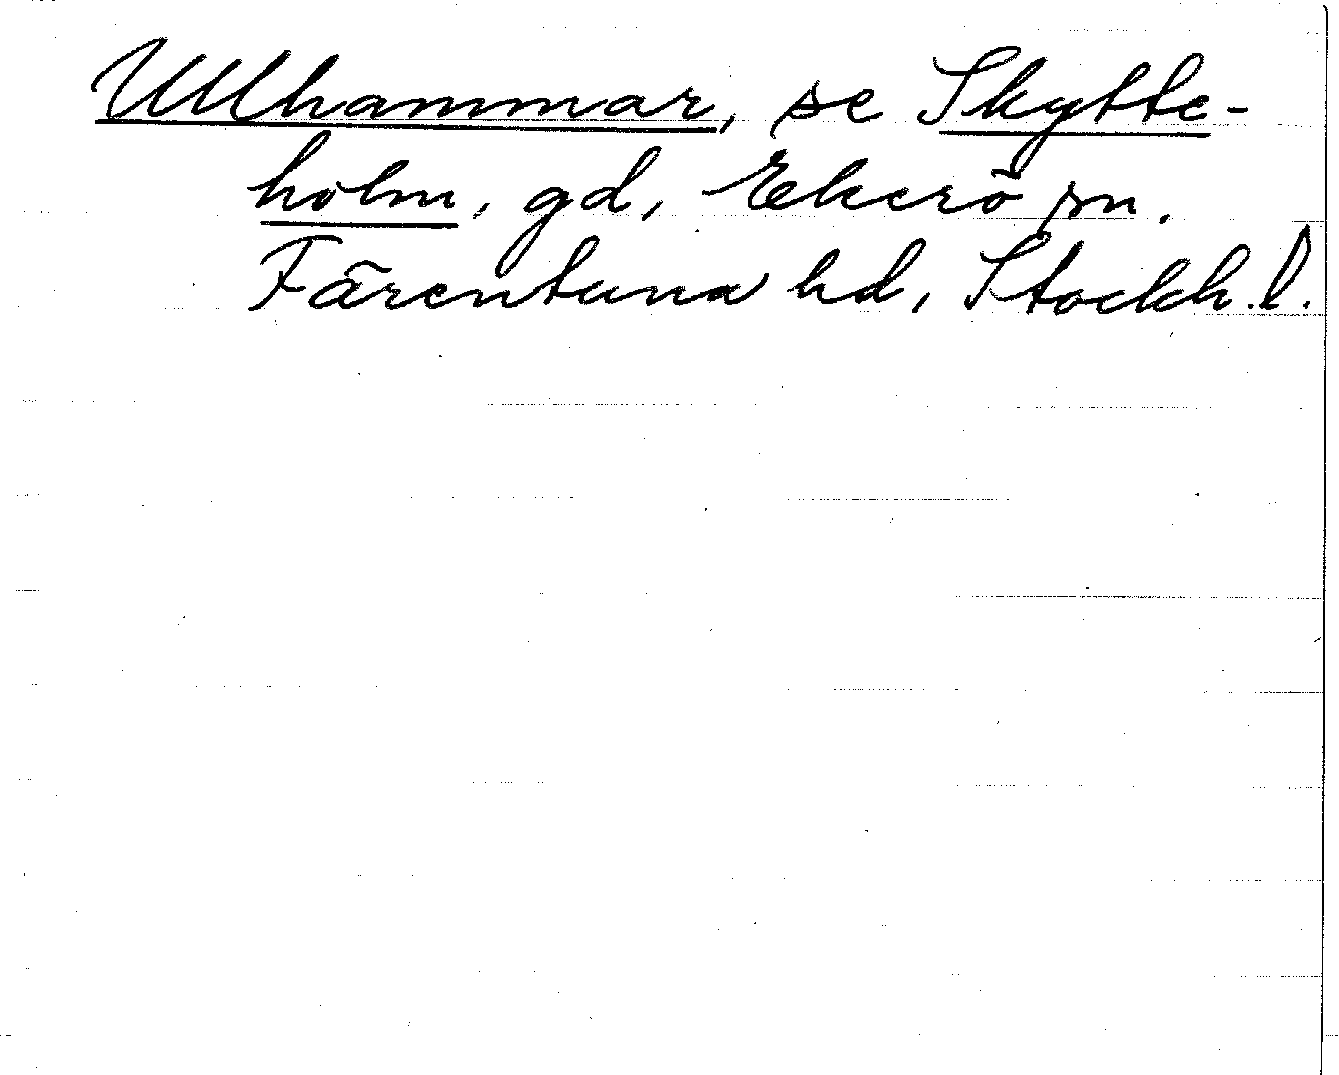 Ullhammar, se Skytte-
holm, gd, Ekerö sn.
Färentuna hd, Stockh.l.